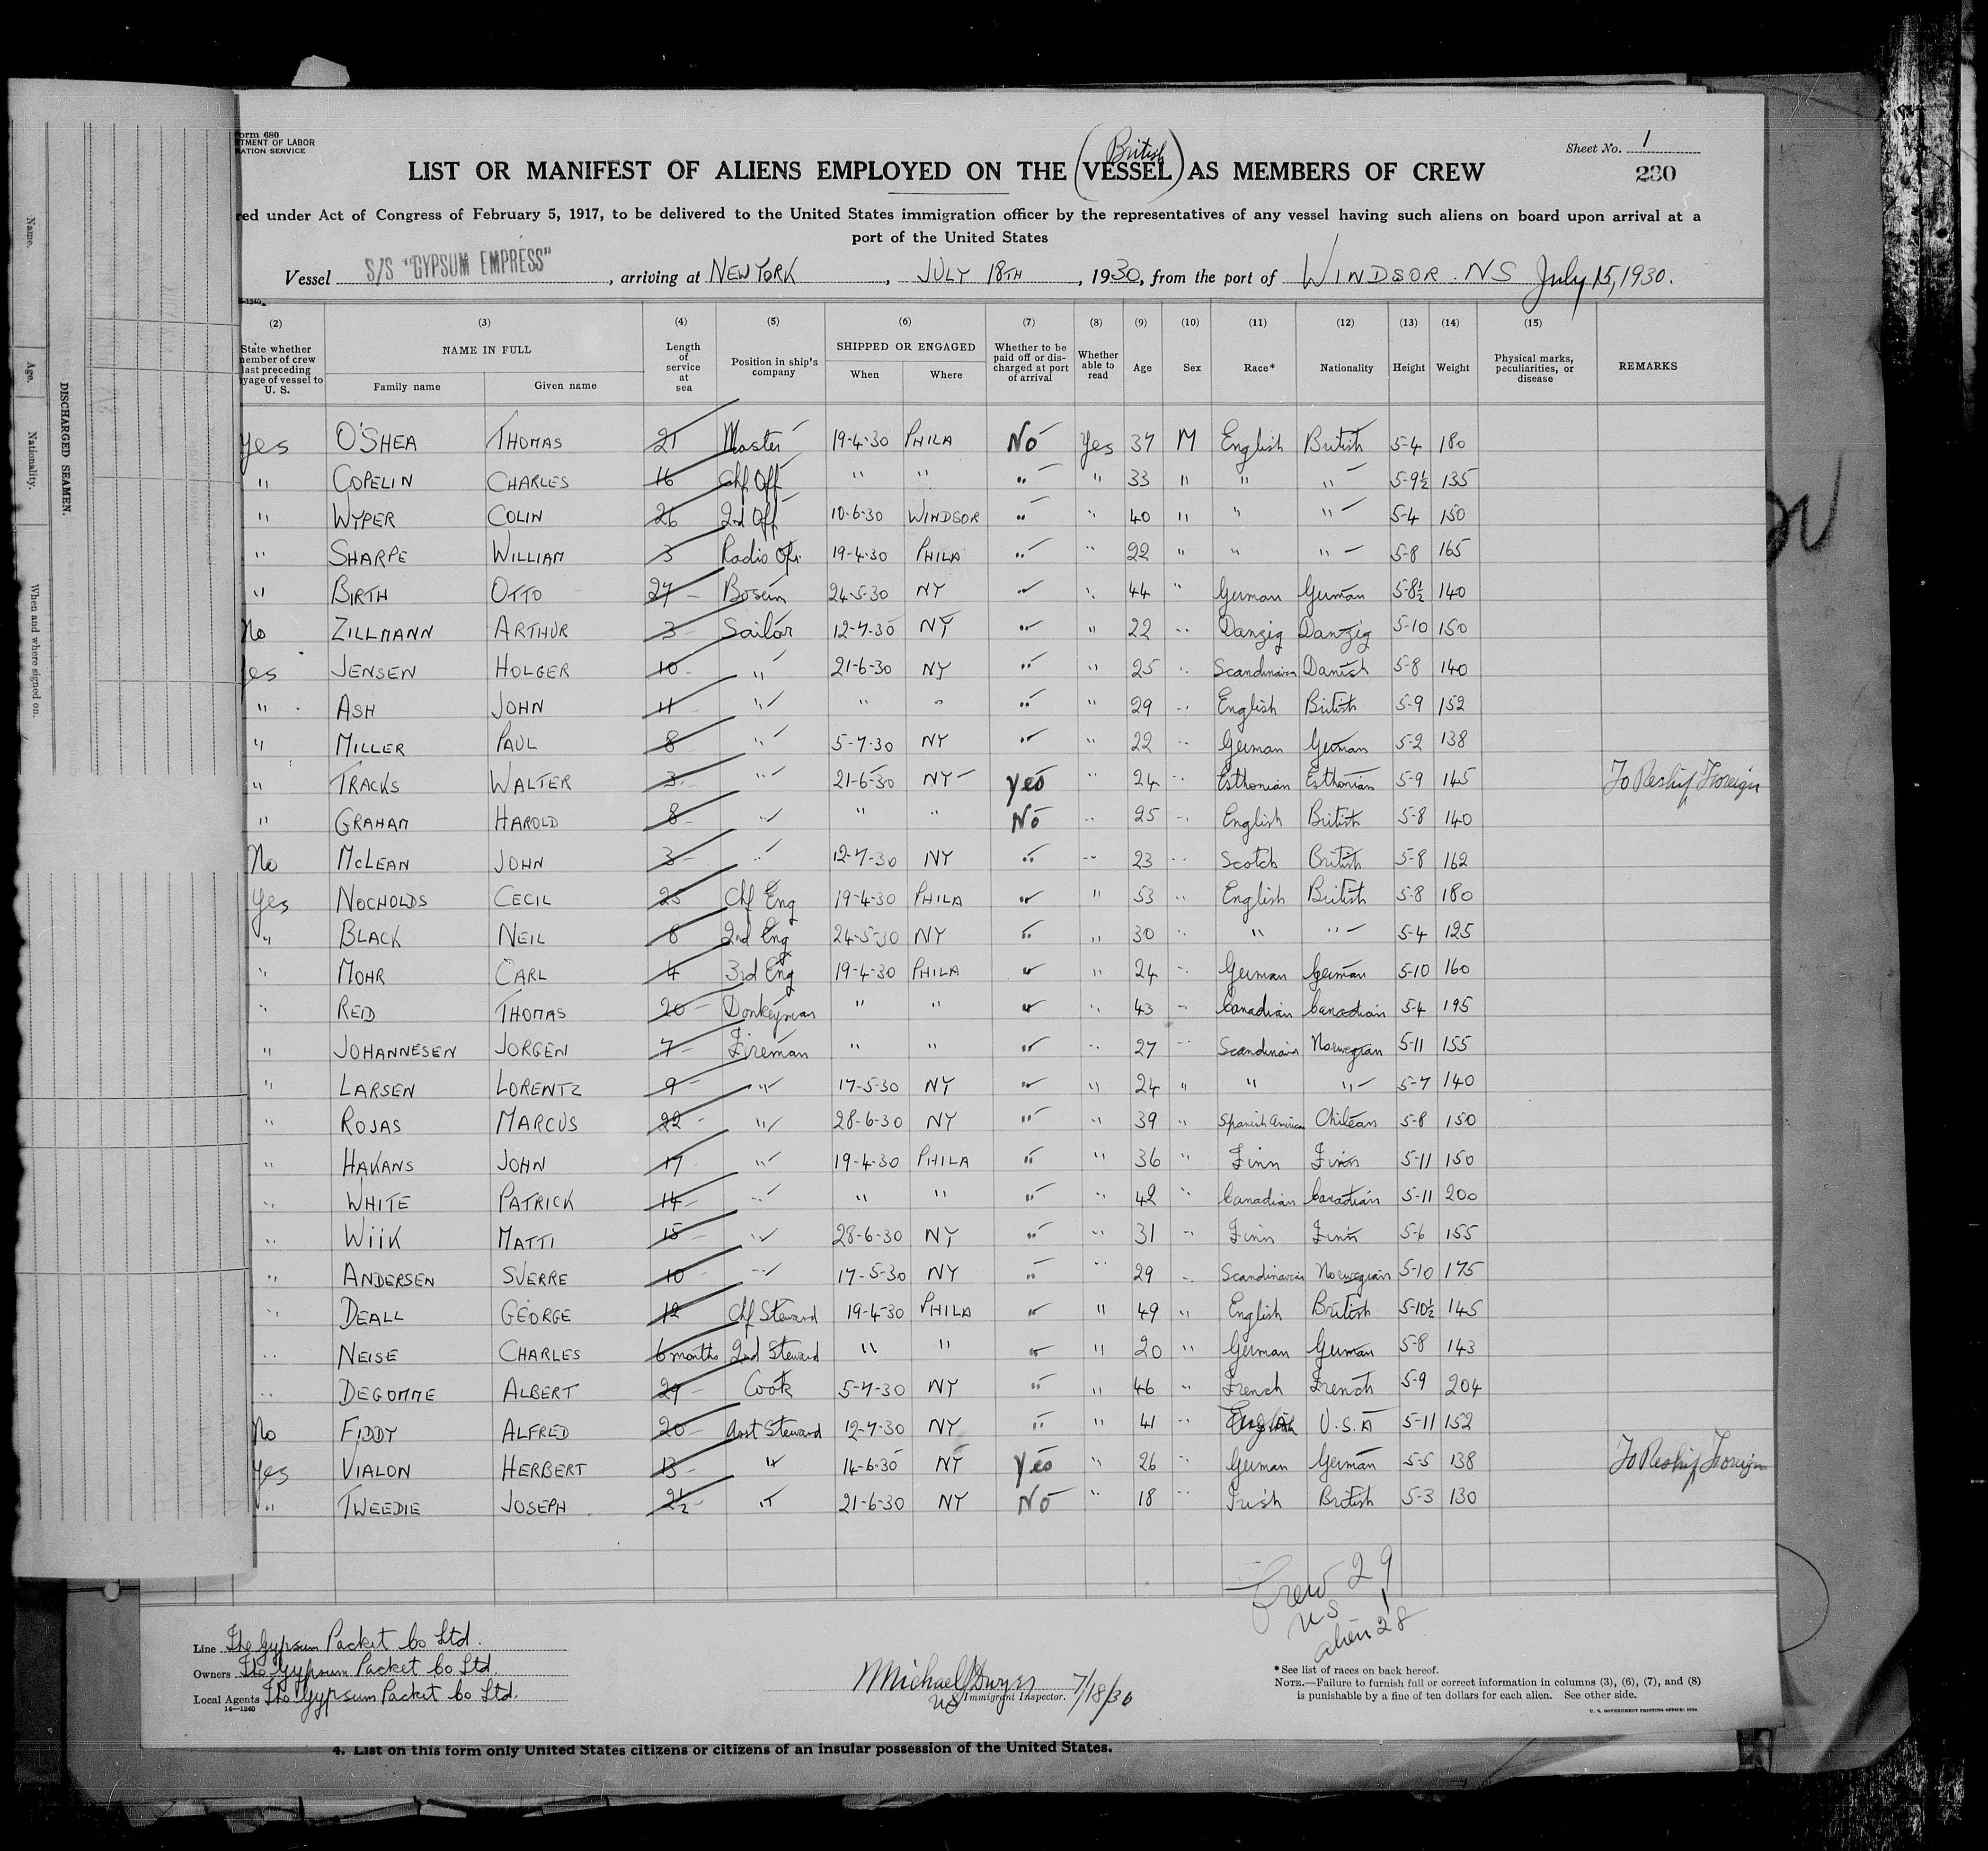 orm 680
TMENT OF LABOR
RATION SERVICE
Sheet No. 1
British
LIST OR MANIFEST OF ALIENS EMPLOYED ON THE (VESSEL) AS MEMBERS OF CREW
230
red under Act of Congress of February 5, 1917, to be delivered to the United States immigration officer by the representatives of any vessel having such aliens on board upon arrival at a
port of the United States
Vessel S/S "GYPSUM EMPRESS", arriving at NEW YORK, JULY 18TH, 1930, from the port of WINDSOR. NS July 15, 1930.
(2) (3) (4) (5) (6) (7) (8) (9) (10) (11) (12) (13) (14) (15)
State whether member of crew last preceding voyage of vessel to U. S. | NAME IN FULL | Family name | Given name | Length of service at sea | Position in ship's company | SHIPPED OR ENGAGED | When | Where | Whether to be paid off or discharged at port of arrival | Whether able to read | Age | Sex | Race* | Nationality | Height | Weight | Physical marks, peculiarities, or disease | REMARKS
Yes O'SHEA THOMAS 21 Master 19-4-30 PHILA No Yes 37 M English British 5-4 180
" COPELIN CHARLES 16 Chf Off " " " " 33 " " " 5-9½ 135
" WYPER COLIN 26 2nd Off 10-6-30 WINDSOR " " 40 " " " 5-4 150
" SHARPE WILLIAM 3 Radio Opr. 19-4-30 PHILA " " 22 " " " 5-8 165
" BIRTH OTTO 27 Bosun 24-5-30 NY " " 44 " German German 5-8½ 140
No ZILLMANN ARTHUR 3 Sailor 12-7-30 NY " " 22 " Danzig Danzig 5-10 150
Yes JENSEN HOLGER 10 " 21-6-30 NY " " 25 " Scandinavian Danish 5-8 140
" ASH JOHN 11 " " " " " 29 " English British 5-9 152
" MILLER PAUL 8 " 5-7-30 NY " " 22 " German German 5-2 138
" TRACKS WALTER 3 " 21-6-30 NY Yes " 24 " Esthonian Esthonian 5-9 145 To Reship Foreign
" GRAHAM HAROLD 8 " " " No " 25 " English British 5-8 140
No McLEAN JOHN 3 " 12-7-30 NY " " 23 " Scotch British 5-8 162
Yes NOCHOLDS CECIL 25 Chf Eng 19-4-30 PHILA " " 53 " English British 5-8 180
" BLACK NEIL 8 2nd Eng 24-5-30 NY " " 30 " " " 5-4 125
" MOHR CARL 4 3rd Eng 19-4-30 PHILA " " 24 " German German 5-10 160
" REID THOMAS 20 Donkeyman " " " " 43 " Canadian Canadian 5-4 195
" JOHANNESEN JORGEN 7 Fireman " " " " 27 " Scandinavian Norwegian 5-11 155
" LARSEN LORENTZ 9 " 17-5-30 NY " " 24 " " " 5-7 140
" ROJAS MARCUS 22 " 28-6-30 NY " " 39 " Spanish American Chilean 5-8 150
" HAKANS JOHN 17 " 19-4-30 PHILA " " 36 " Finn Finn 5-11 150
" WHITE PATRICK 14 " " " " " 42 " Canadian Canadian 5-11 200
" WIIK MATTI 15 " 28-6-30 NY " " 31 " Finn Finn 5-6 155
" ANDERSEN SVERRE 10 " 17-5-30 NY " " 29 " Scandinavian Norwegian 5-10 175
" DEALL GEORGE 12 Chf Steward 19-4-30 PHILA " " 49 " English British 5-10½ 145
" NEISE CHARLES 6 months 2nd Steward " " " " 20 " German German 5-8 143
" DEGOMME ALBERT 29 Cook 5-7-30 NY " " 46 " French French 5-9 204
No FIDDY ALFRED 20 Asst Steward 12-7-30 NY " " 41 " English U.S.A 5-11 152
Yes VIALON HERBERT 13 " 14-6-30 NY Yes " 26 " German German 5-5 138 To Reship Foreign
" TWEEDIE JOSEPH 2½ " 21-6-30 NY No " 18 " Irish British 5-3 130
Crew 29
US 1
alien 28
Line The Gypsum Packet Co Ltd.
Owners The Gypsum Packet Co Ltd.
Local Agents The Gypsum Packet Co Ltd.
14—1240
Michael Dwyer 7/18/30
US Immigrant Inspector.
*See list of races on back hereof.
NOTE.—Failure to furnish full or correct information in columns (3), (6), (7), and (8)
is punishable by a fine of ten dollars for each alien. See other side.
U. S. GOVERNMENT PRINTING OFFICE: 1929
4. List on this form only United States citizens or citizens of an insular possession of the United States.
DISCHARGED SEAMEN.
Name.
Age.
Nationality.
When and where signed on.